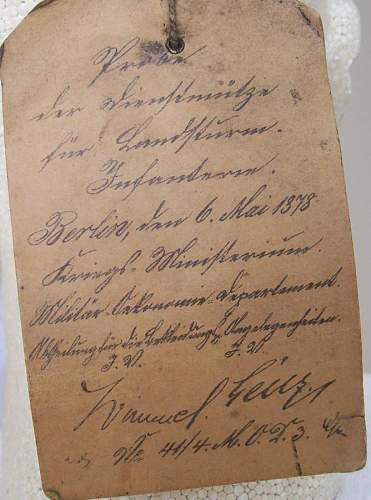 Probe
der Dienstmütze
für Landsturm-
Infanterie.
Berlin, den 6. Mai 1878.
Kriegs-Ministerium.
Militär-Oekonomie-Departement.
Abtheilung für die Bekleidungs-Angelegenheiten.
I. V. I. V.
No 41/4. M. O. D. 3.